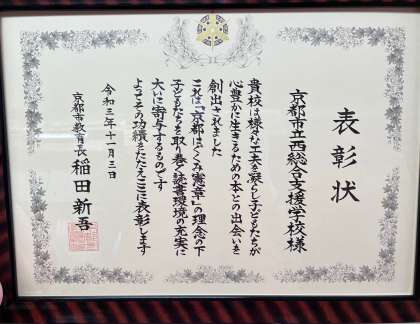 表彰状
京都市立西総合支援学校様
貴校は様々な工夫を凝らし子どもたちが
心豊かに生きるための本との出会いを
創出されました
これは「京都はぐくみ憲章」の理念の下
子どもたちを取り巻く読書環境の充実に
大いに寄与するものです
よってその功績をたたえここに表彰します
令和三年十一月三日
京都市教育長 稲田新吾